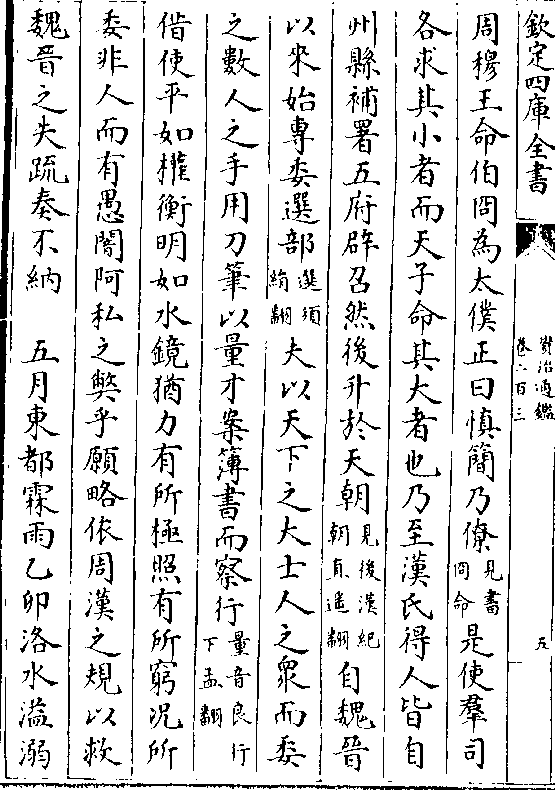 欽定四庫全書
資治通鑑
卷二百三
五
周穆王命伯冏為太僕正曰慎簡乃僚見書冏命是使羣司
各求其小者而天子命其大者也乃至漢氏得人皆自
州縣補署五府辟召然後升於天朝見後漢紀朝直遥翻自魏晉
以來始專委選部選須絹翻夫以天下之大士人之眾而委
之數人之手用刀筆以量才案簿書而察行量音良行下孟翻
借使平如權衡明如水鏡猶力有所極照有所窮况所
委非人而有愚闇阿私之弊乎願略依周漢之規以救
魏晉之失疏奏不納　五月東都霖雨乙卯洛水溢溺